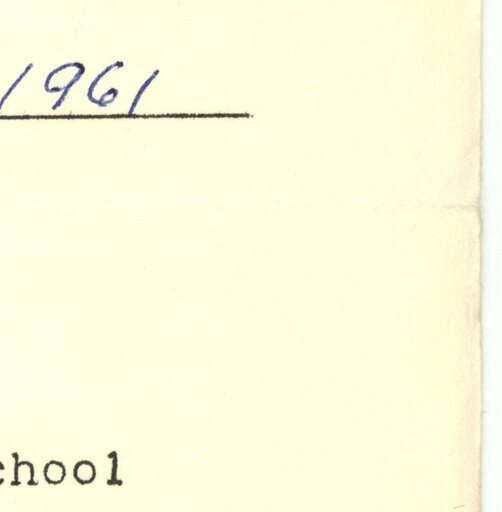 1961
chool